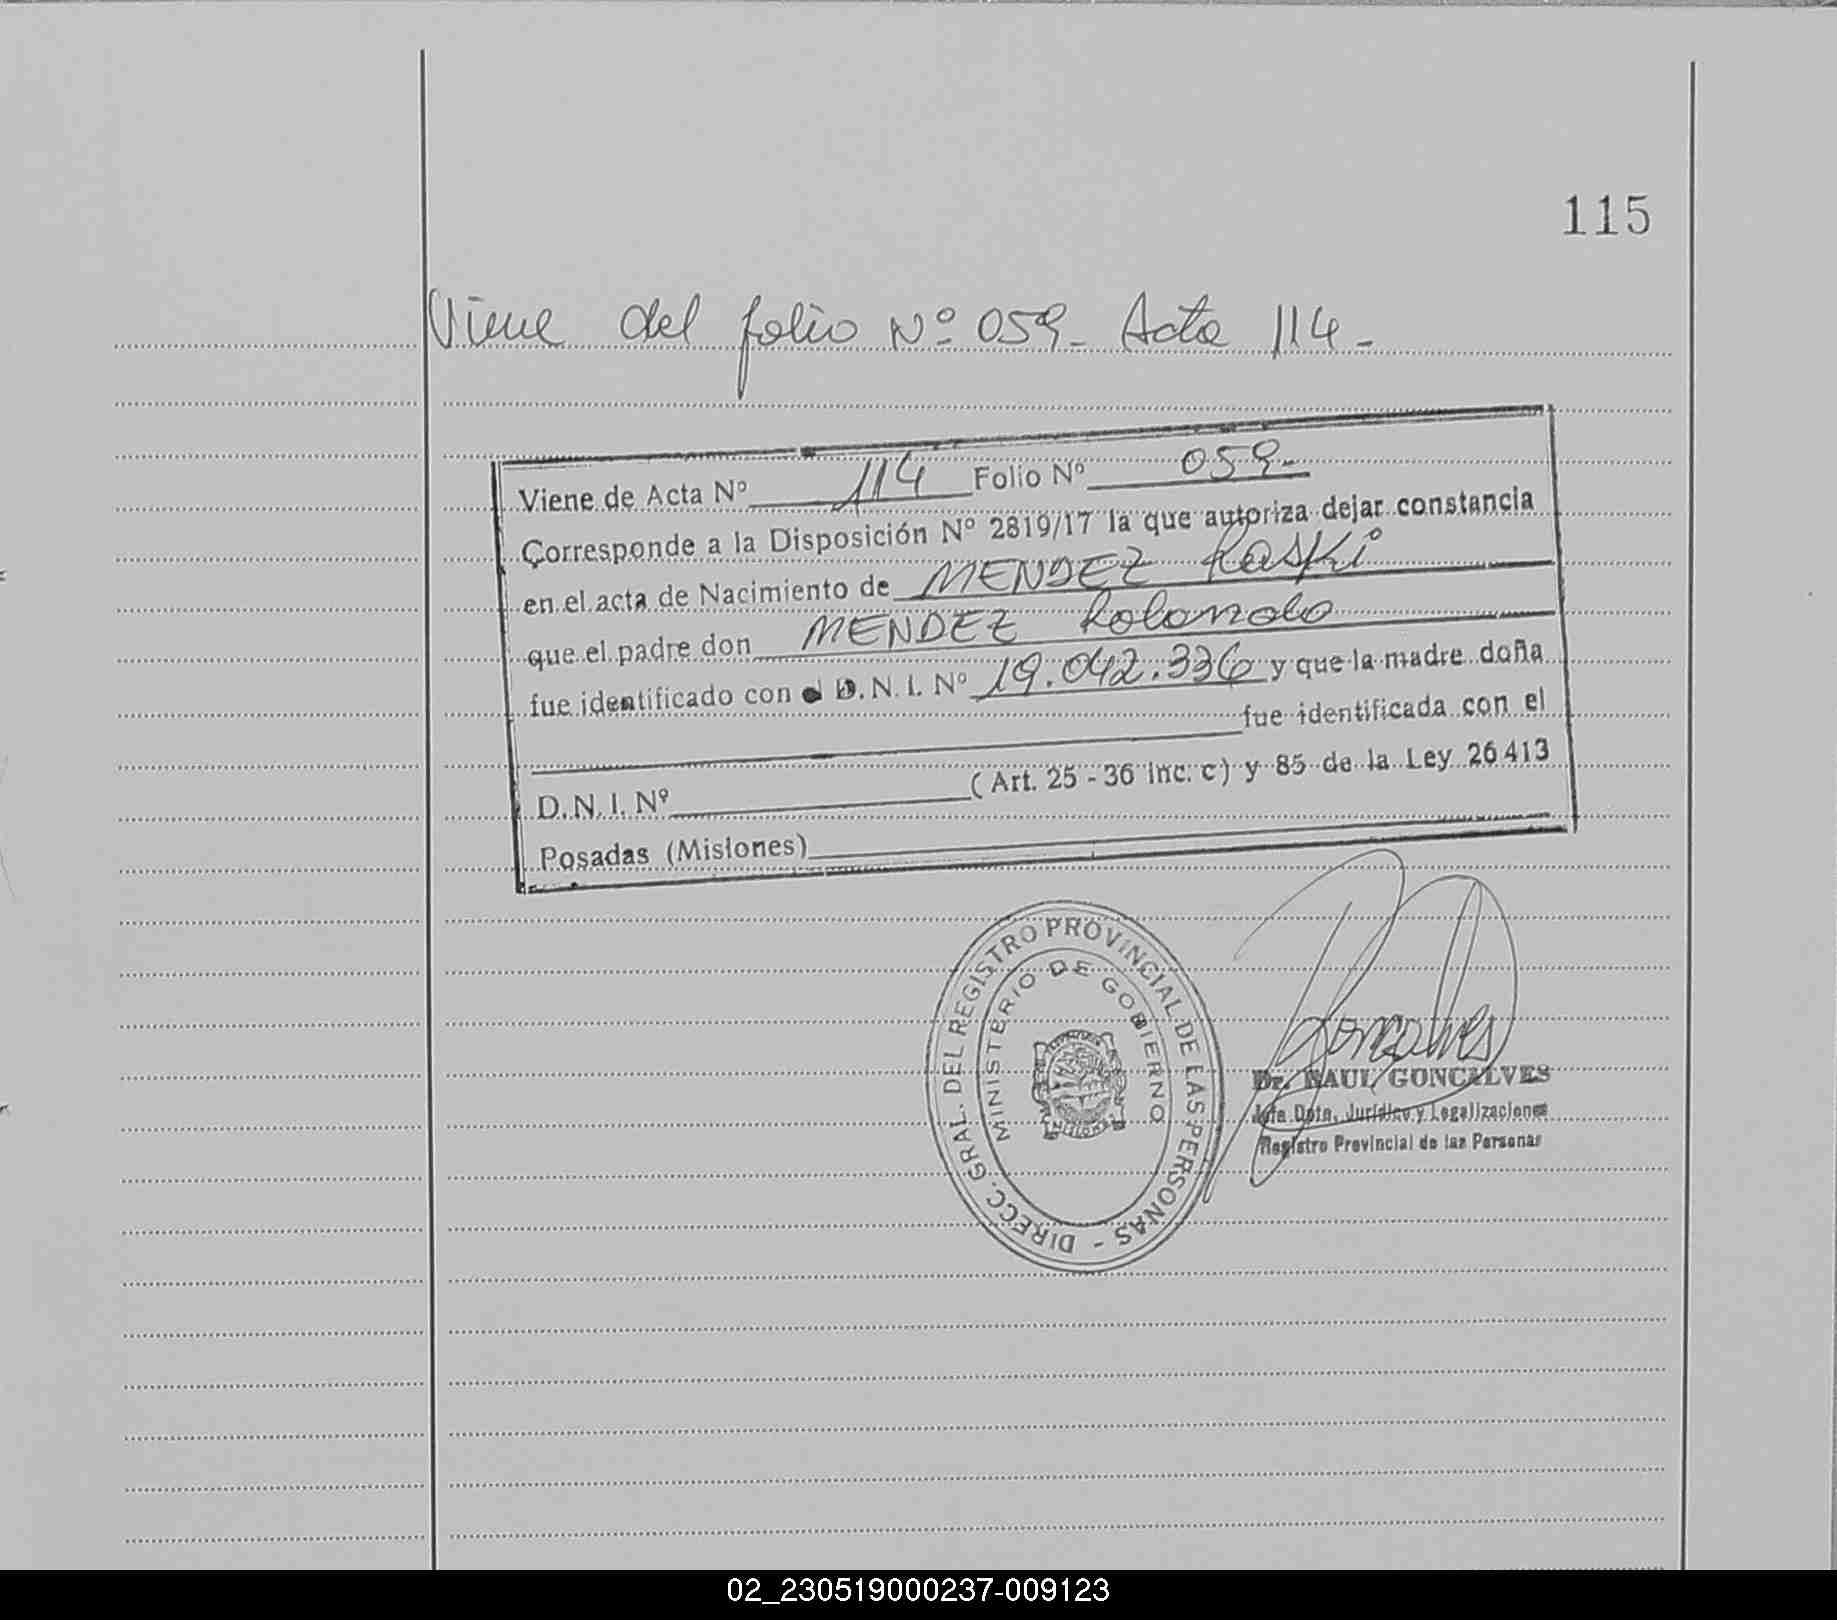 115
Viene del folio Nº 059- Acta 114-
Viene de Acta Nº 114 Folio Nº 059-
Corresponde a la Disposición Nº 2819/17 la que autoriza dejar constancia
en el acta de Nacimiento de MENDEZ Raski
que el padre don MENDEZ Rolando
fue identificado con el D.N.I. Nº 19.042.336 y que la madre doña
fue identificada con el
D.N.I. Nº (Art. 25 - 36 inc. c) y 85 de la Ley 26413
Posadas (Misiones)
DIRECC. GRAL. DEL REGISTRO PROVINCIAL DE LAS PERSONAS -
MINISTERIO DE GOBIERNO
MISIONES
Goncalves
Dr. RAUL GONCALVES
Jefe Dpto. Jurídico y Legalizaciones
Registro Provincial de las Personas
02_230519000237-009123